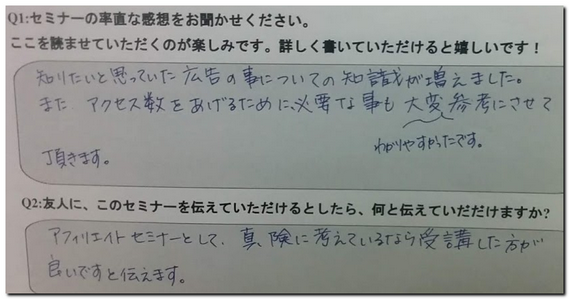 Q1:セミナーの率直な感想をお聞かせください。
ここを読ませていただくのが楽しみです。詳しく書いていただけると嬉しいです！
知りたいと思っていた広告の事についての知識が増えました。
また アクセス数をあげるために必要な事も 大変参考にさせて
わかりやすかったです。
頂きます。
Q2:友人に、このセミナーを伝えていただけるとしたら、何と伝えていだだけますか?
アフィリエイトセミナーとして、真険に考えているなら受講した方が
良いですと伝えます。